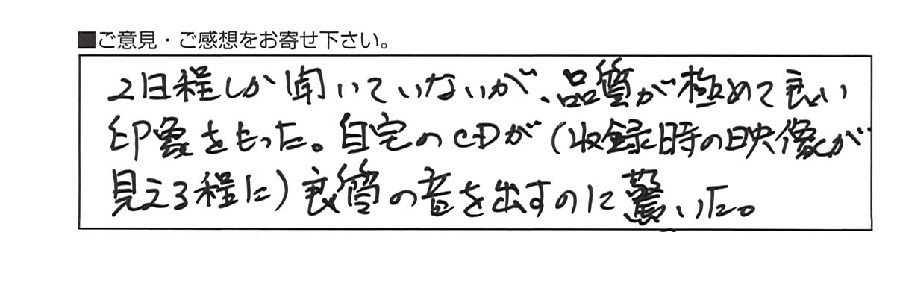 ■ご意見・ご感想をお寄せ下さい。
2日程しか聞いていないが、品質が極めて良い
印象をもった。自宅のCDが（収録時の映像が
見える程に）良質の音を出すのに驚いた。